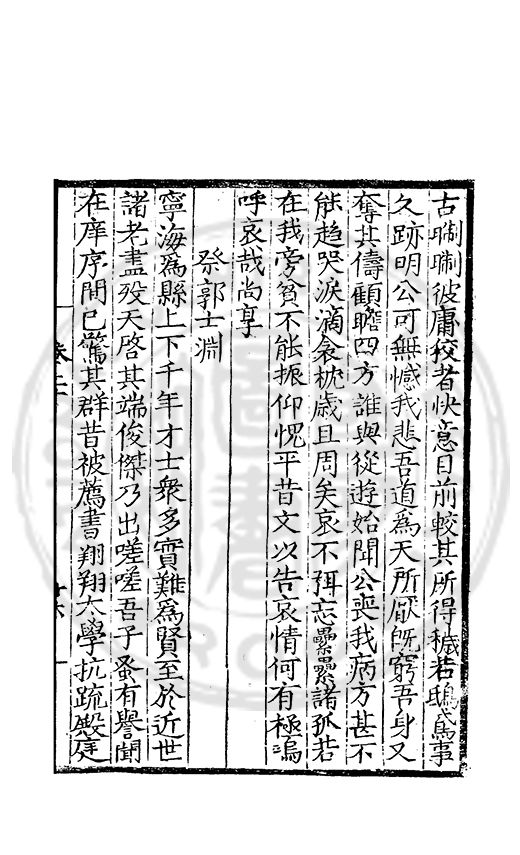 古聊聊彼庸狡者快意目前較其所得穢若鴟鳶事
久跡明公可無憾我悲吾道為天所厭旣窮吾身又
奪其儔顧瞻四方誰與從遊始聞公喪我病方甚不
能趋哭淚滴衾枕歲且周矣哀不弭忘纍纍諸孤若
在我旁貧不能振仰愧平昔文以告哀情何有極嗚
呼哀哉尚享
祭郭士淵
寧海為縣上下千年才士衆多實難為賢至於近世
諸老盡殁天啓其端俊傑乃出嗟嗟吾子蚤有譽聞
在庠序間已驚其群昔被薦書翔翔太學抗疏殿庭
卷二十